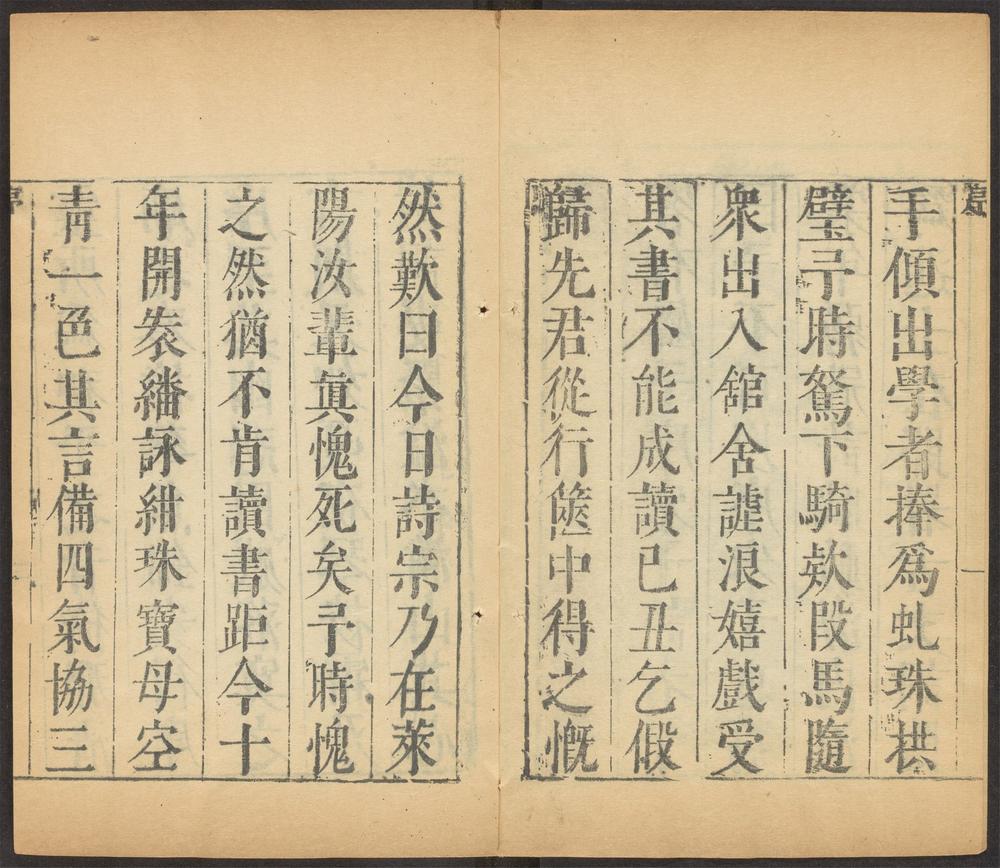 手傾出學者捧爲虬珠拱
璧予時駑下騎欵段馬隨
衆出入舘舍謔浪嬉戲受
其書不能成讀已丑乞假
歸先君從行篋中得之慨
然歎曰今日詩宗乃在萊
陽汝輩眞愧死矣予時愧
之然猶不肯讀書距今十
年開袠繙詠紺珠寶母空
靑一色其言備四氣協三